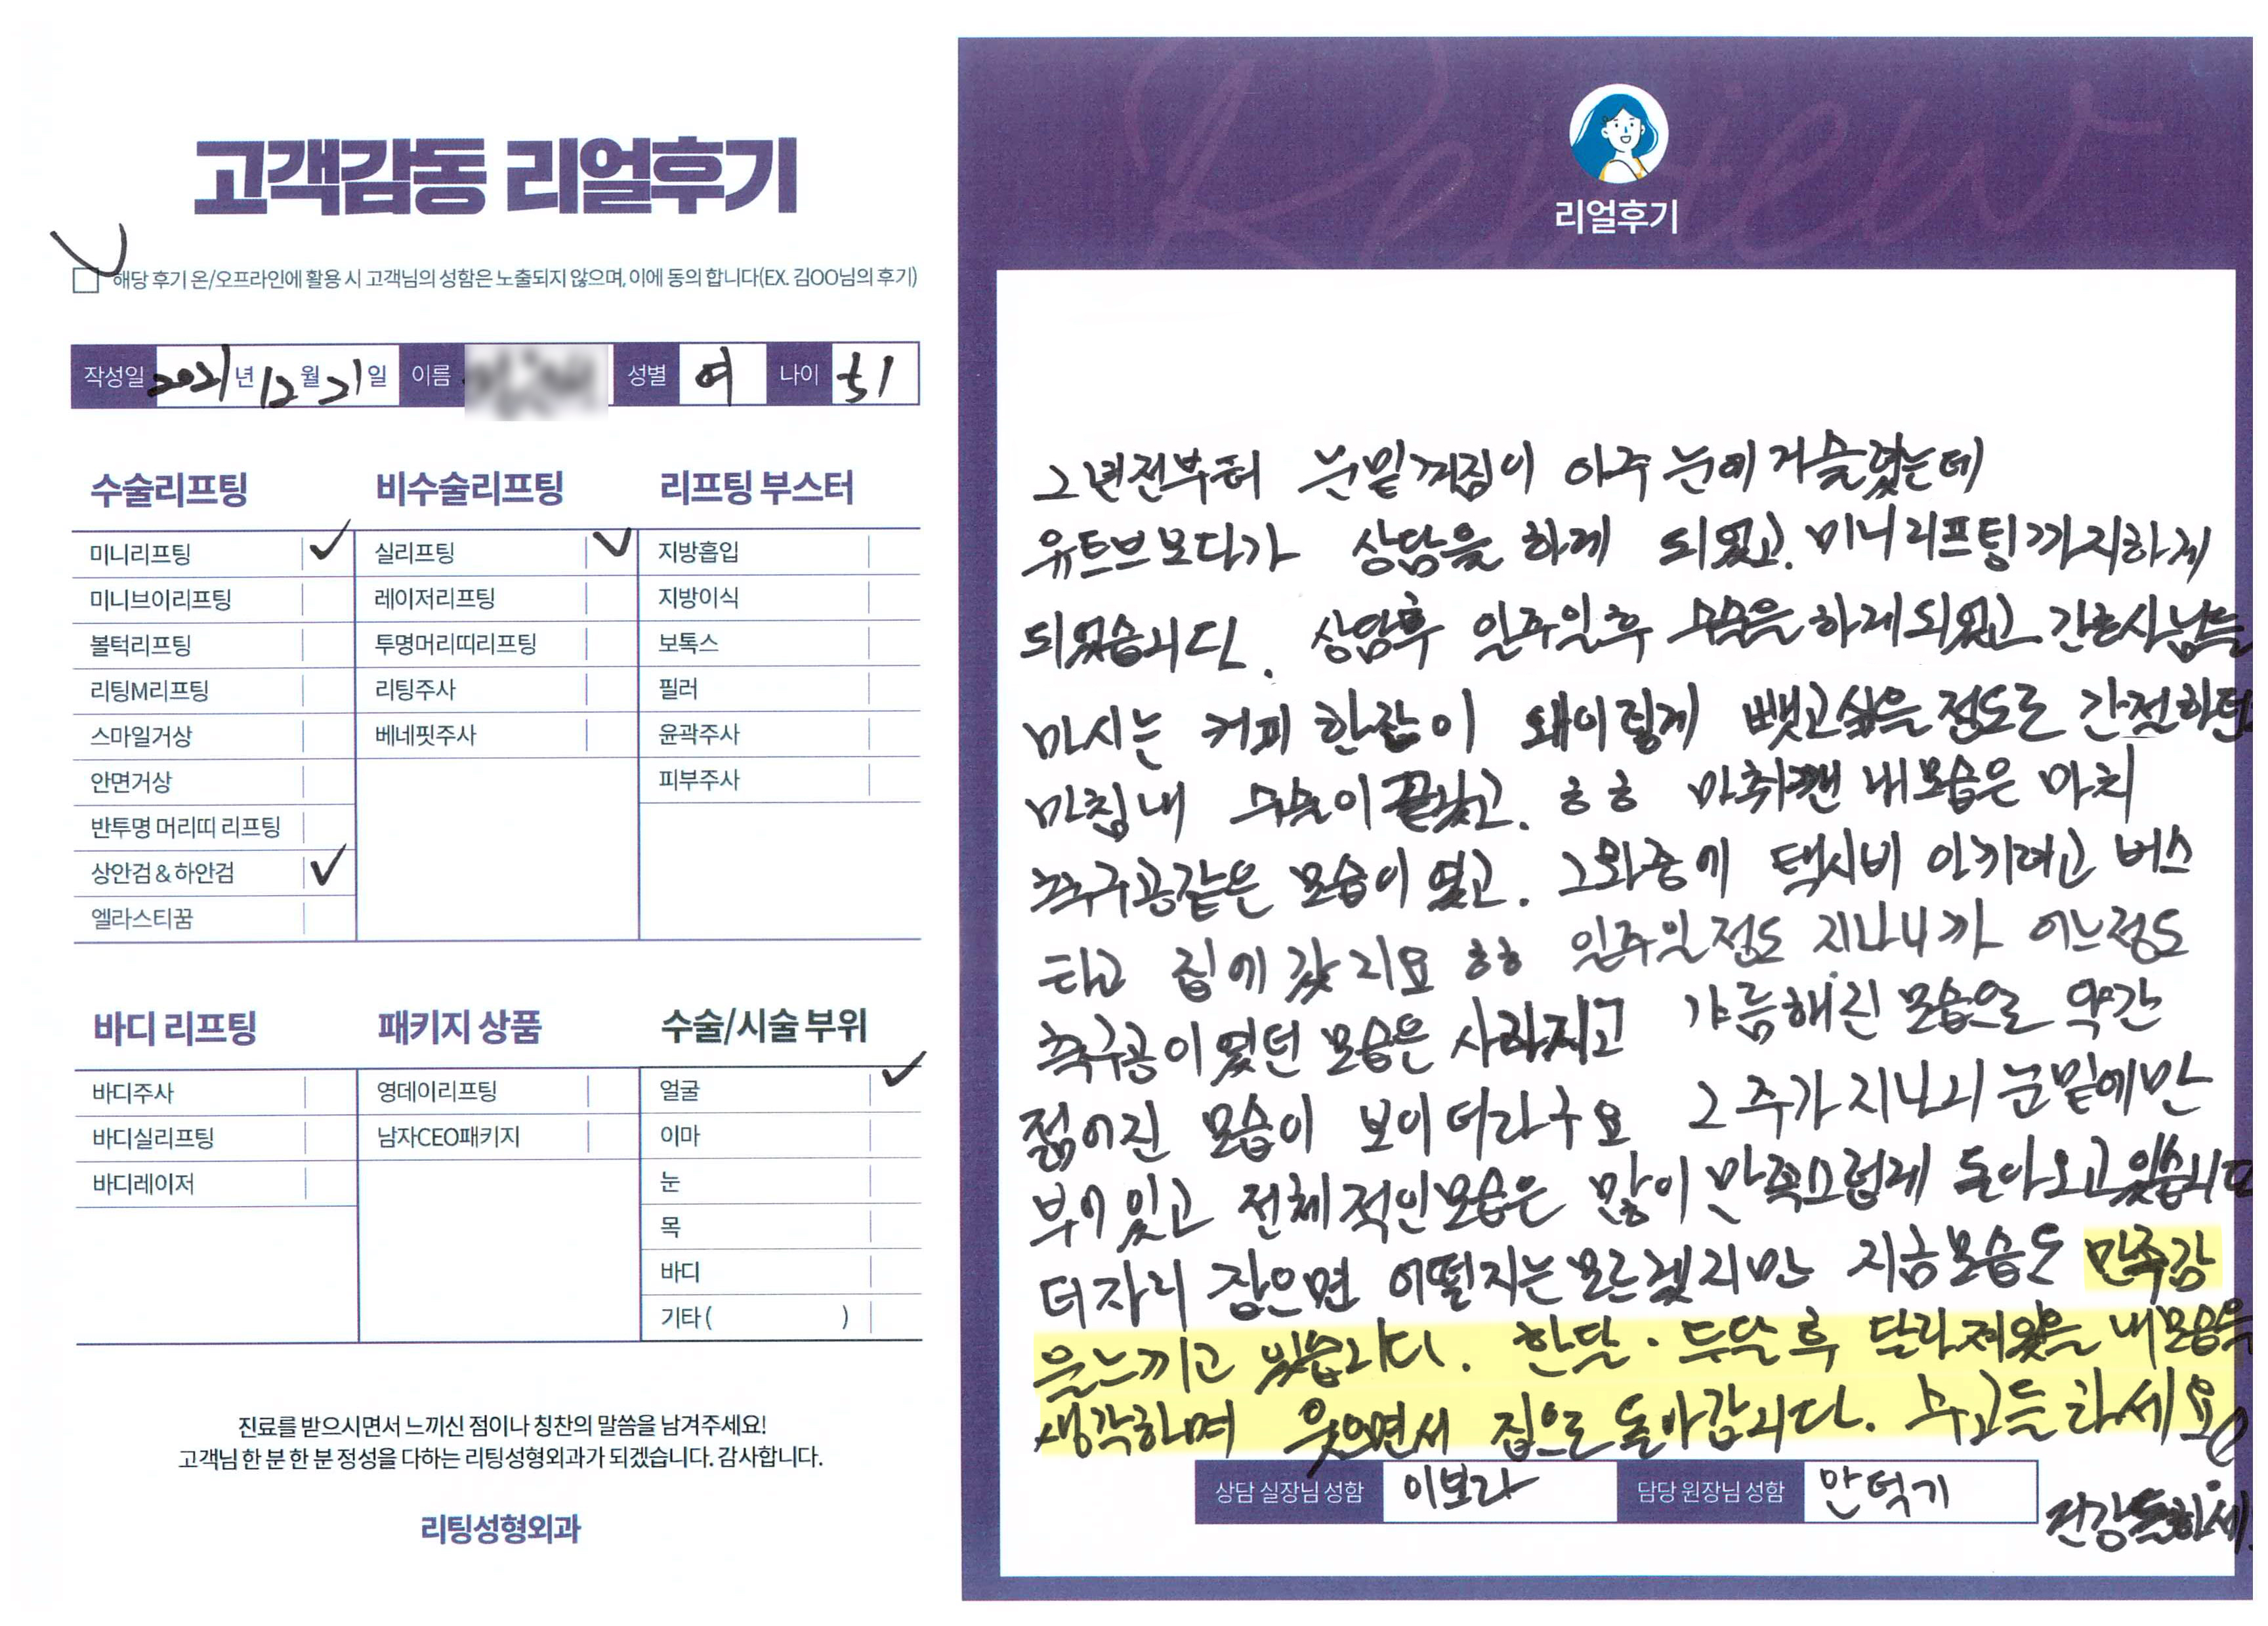 고객감동 리얼후기
해당 후기 온/오프라인에 활용 시 고객님의 성함은 노출되지 않으며, 이에 동의 합니다(EX. 김OO님의 후기)
작성일 2021년 12월 21일 이름 성별 여 나이 51
수술리프팅
미니리프팅 ✓
미니브이리프팅
볼턱리프팅
리팅M리프팅
스마일거상
안면거상
반투명 머리띠 리프팅
상안검 & 하안검 ✓
엘라스티꿈
비수술리프팅
실리프팅 ✓
레이저리프팅
투명머리띠리프팅
리팅주사
베네핏주사
리프팅 부스터
지방흡입
지방이식
보톡스
필러
윤곽주사
피부주사
바디 리프팅
바디주사
바디실리프팅
바디레이저
패키지 상품
영데이리프팅
남자CEO패키지
수술/시술 부위
얼굴 ✓
이마
눈
목
바디
기타 ( )
진료를 받으시면서 느끼신 점이나 칭찬의 말씀을 남겨주세요!
고객님 한 분 한 분 정성을 다하는 리팅성형외과가 되겠습니다. 감사합니다.
리팅성형외과
Review
리얼후기
2년전부터 눈밑꺼짐이 아주 눈에 거슬렸는데
유트브보다가 상담을 하게 되었고. 미니리프팅까지하게
되었습니다. 상담후 일주일후 수술을 하게되었고 간호사님들
마시는 커피 한잔이 왜이렇게 뺏고싶을 정도로 간절하던
마침내 수술이 끝났고. ㅎㅎ 마취깬 내모습은 마치
축구공같은 모습이 였고. 그와중에 택시비 아끼려고 버스
타고 집에 갔지요 ㅎㅎ 일주일정도 지나니까 어느정도
축구공이였던 모습은 사라지고 갸름해진 모습으로 약간
젊어진 모습이 보이더라구요 2주가 지나니 눈밑에만
부어있고 전체적인모습은 많이 만족스럽게 돌아오고있습니다
더자리 잡으면 어떨지는모르겠지만 지금모습도 만족감
을느끼고 있습니다. 한달·두달 후 달라져있을 내모습을
생각하며 웃으면서 집으로 돌아갑니다. 수고들 하세요
상담 실장님 성함 이보라 담당 원장님 성함 안덕기
건강들하세